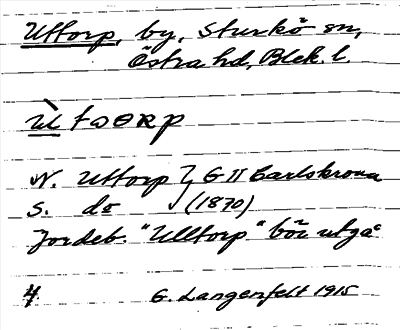 Uttorp, by, Sturkö sn,
Östra hd, Blek. l.
ùtɷɵʀp
N. Uttorp } G II Carlskrona
S. do (1870)
Jordeb. "Ulltorp" bör utgå
4. G. Langenfelt 1915